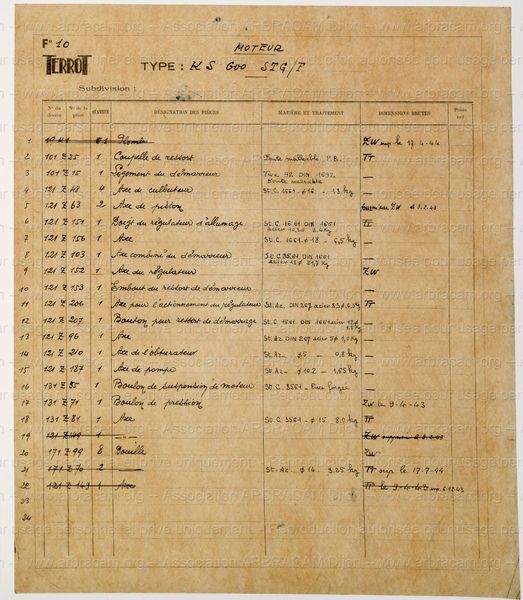 F° 10
MOTEUR
TERROT
TYPE : K S 600 STG/F
Subdivision :
N° du dessin N° de la pièce QUANTITÉ DÉSIGNATION DES PIÈCES MATIÈRE ET TRAITEMENT DIMENSIONS BRUTES Poids net
1 Plomb ZW sup le 17.4.44
2 101 Z 25 1 Coupelle de ressort Fonte malléable P.B. TT
3 101 Z 15 1 Logement du démarreur DIN 1692 Fonte malléable —
4 121 Z 48 4 Axe de culbuteur St.C. 1661 ø 16 - 13 kg —
5 121 Z 63 2 Axe de piston ZW
6 121 Z 151 1 Doigt du régulateur d'allumage St.C. 1661 DIN 1651 TT
7 121 Z 156 1 Axe St.C. 1661 ø 18 - 6,5 kg —
8 121 Z 103 1 Axe combiné du démarreur St.C 3561 DIN 1661 —
9 121 Z 152 1 Axe du régulateur ZW
10 121 Z 153 1 Embout du ressort de démarreur —
11 121 Z 206 1 Axe pour l'actionnement du régulateur St. Az DIN 267 TT
12 121 Z 207 1 Bouton pour ressort de démarrage St.C. 1661 DIN —
13 121 Z 96 1 Axe St. Az DIN 267 —
14 121 Z 210 1 Axe de l'obturateur St. Az. ø 5 - 0,8 kg —
15 121 Z 187 1 Axe de pompe St. Az - ø 10.2 - 1,65 kg —
16 131 Z 85 1 Boulon de suspension de moteur St. C. 3561 —
17 131 Z 71 1 Boulon de pression ZW le 9-4-43
18 131 Z 81 1 Axe St. C. 3561 - ø 15 8.0 kg TT
19 121 Z 149 1 — ZW
20 171 Z 99 8 Douille ZW
21 171 Z 70 2 — St. Az. ø 14. 3.25 kg TT sup le 17.7.44
22 121 Z 143 1 Axe TT le 9.4.43 sup. 6.12.43
23
24